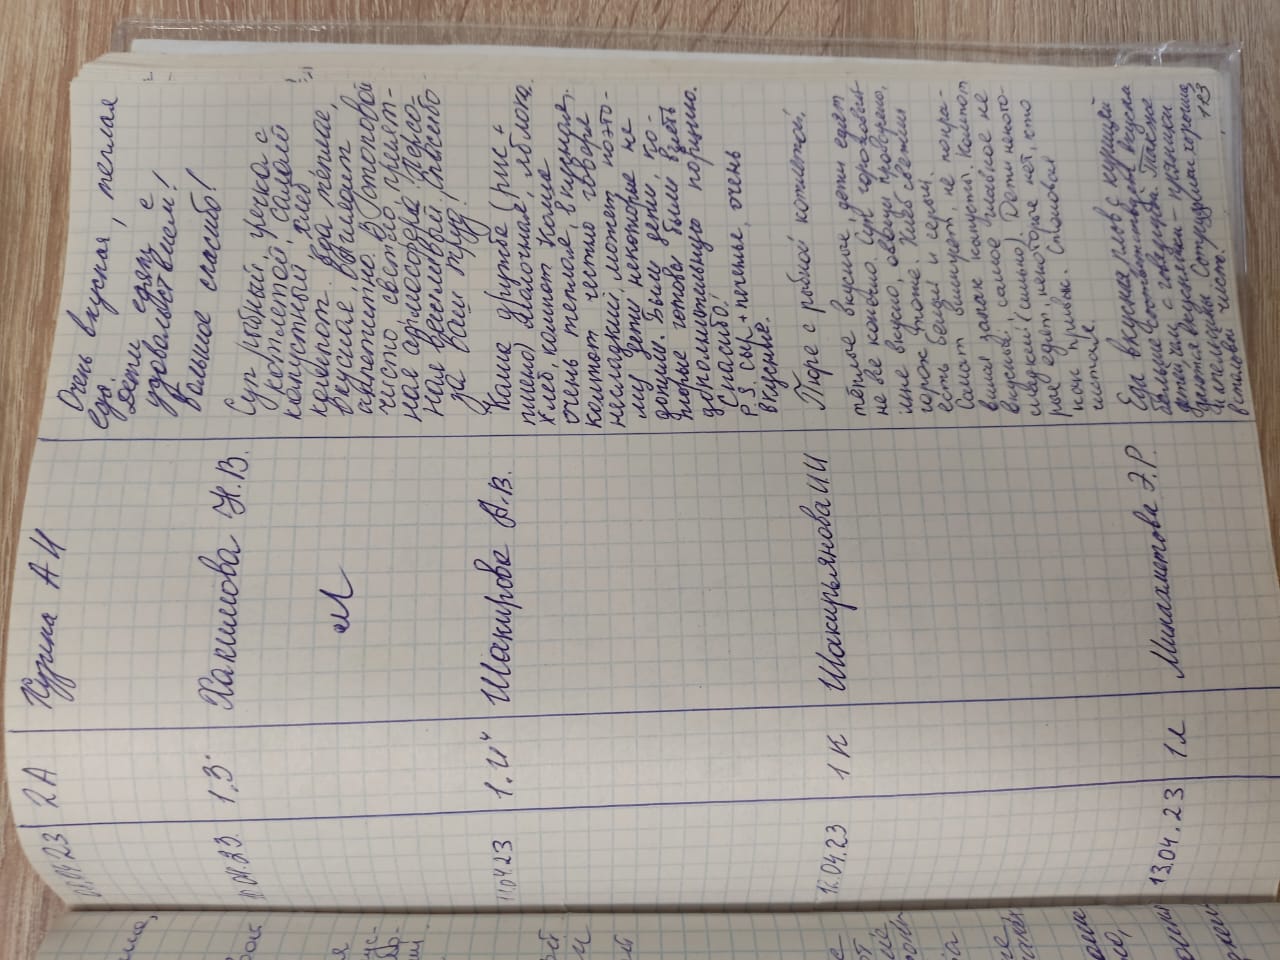 04.23 2А Курина А И Очень вкусная, теплая
еда. Дети едят с
удовольствием!
Большое спасибо!
10.04.23. 1"З" Хакимова Н.В. Суп рыбный, гречка с
котлетой, салат
капустный, хлеб
компот. Еда теплая,
вкусная, выглядит
аппетитно. В столовой
чисто светло, прият-
ное атмосфера. Персо-
нал вежливый. Спасибо
за ваш труд!
11.04.23 1"И" Шакирова А.В. Каша дружба (рис +
пшено) молочная, яблоко,
хлеб, компот. Каша
очень теплая, вкусная,
компот честно говоря
несладкий, может поэто-
му дети некоторые не
допили. Были дети, ко-
торые готовы были взять
дополнительную порцию.
Спасибо!
P.S. сыр + печенье, очень
вкусные.
12.04.23 1К Шакирьянова И И Пюре с рыбной котлетой,
тёплые вкусные, дети едят
не все конечно. Суп гороховый
вкусно, овощи проварено,
горох тоже. Хлеб свежий
есть белый и серый.
Салат винегрет, не понра-
вился запах капусты. Компот
вкусный, самое главное не
сладкий (сильно). Дети некото-
рые едят, некоторые нет, кто
как привык. Столовая
чистая.
13.04.23 1л Минахметова Э.Р. Еда вкусная плов с курицей
больше соответствует вкуса
детей чем с говядиной. Также
вкусняшки - пряники
и апельсины. Сотрудники хорошие,
в столовой чисто.
123